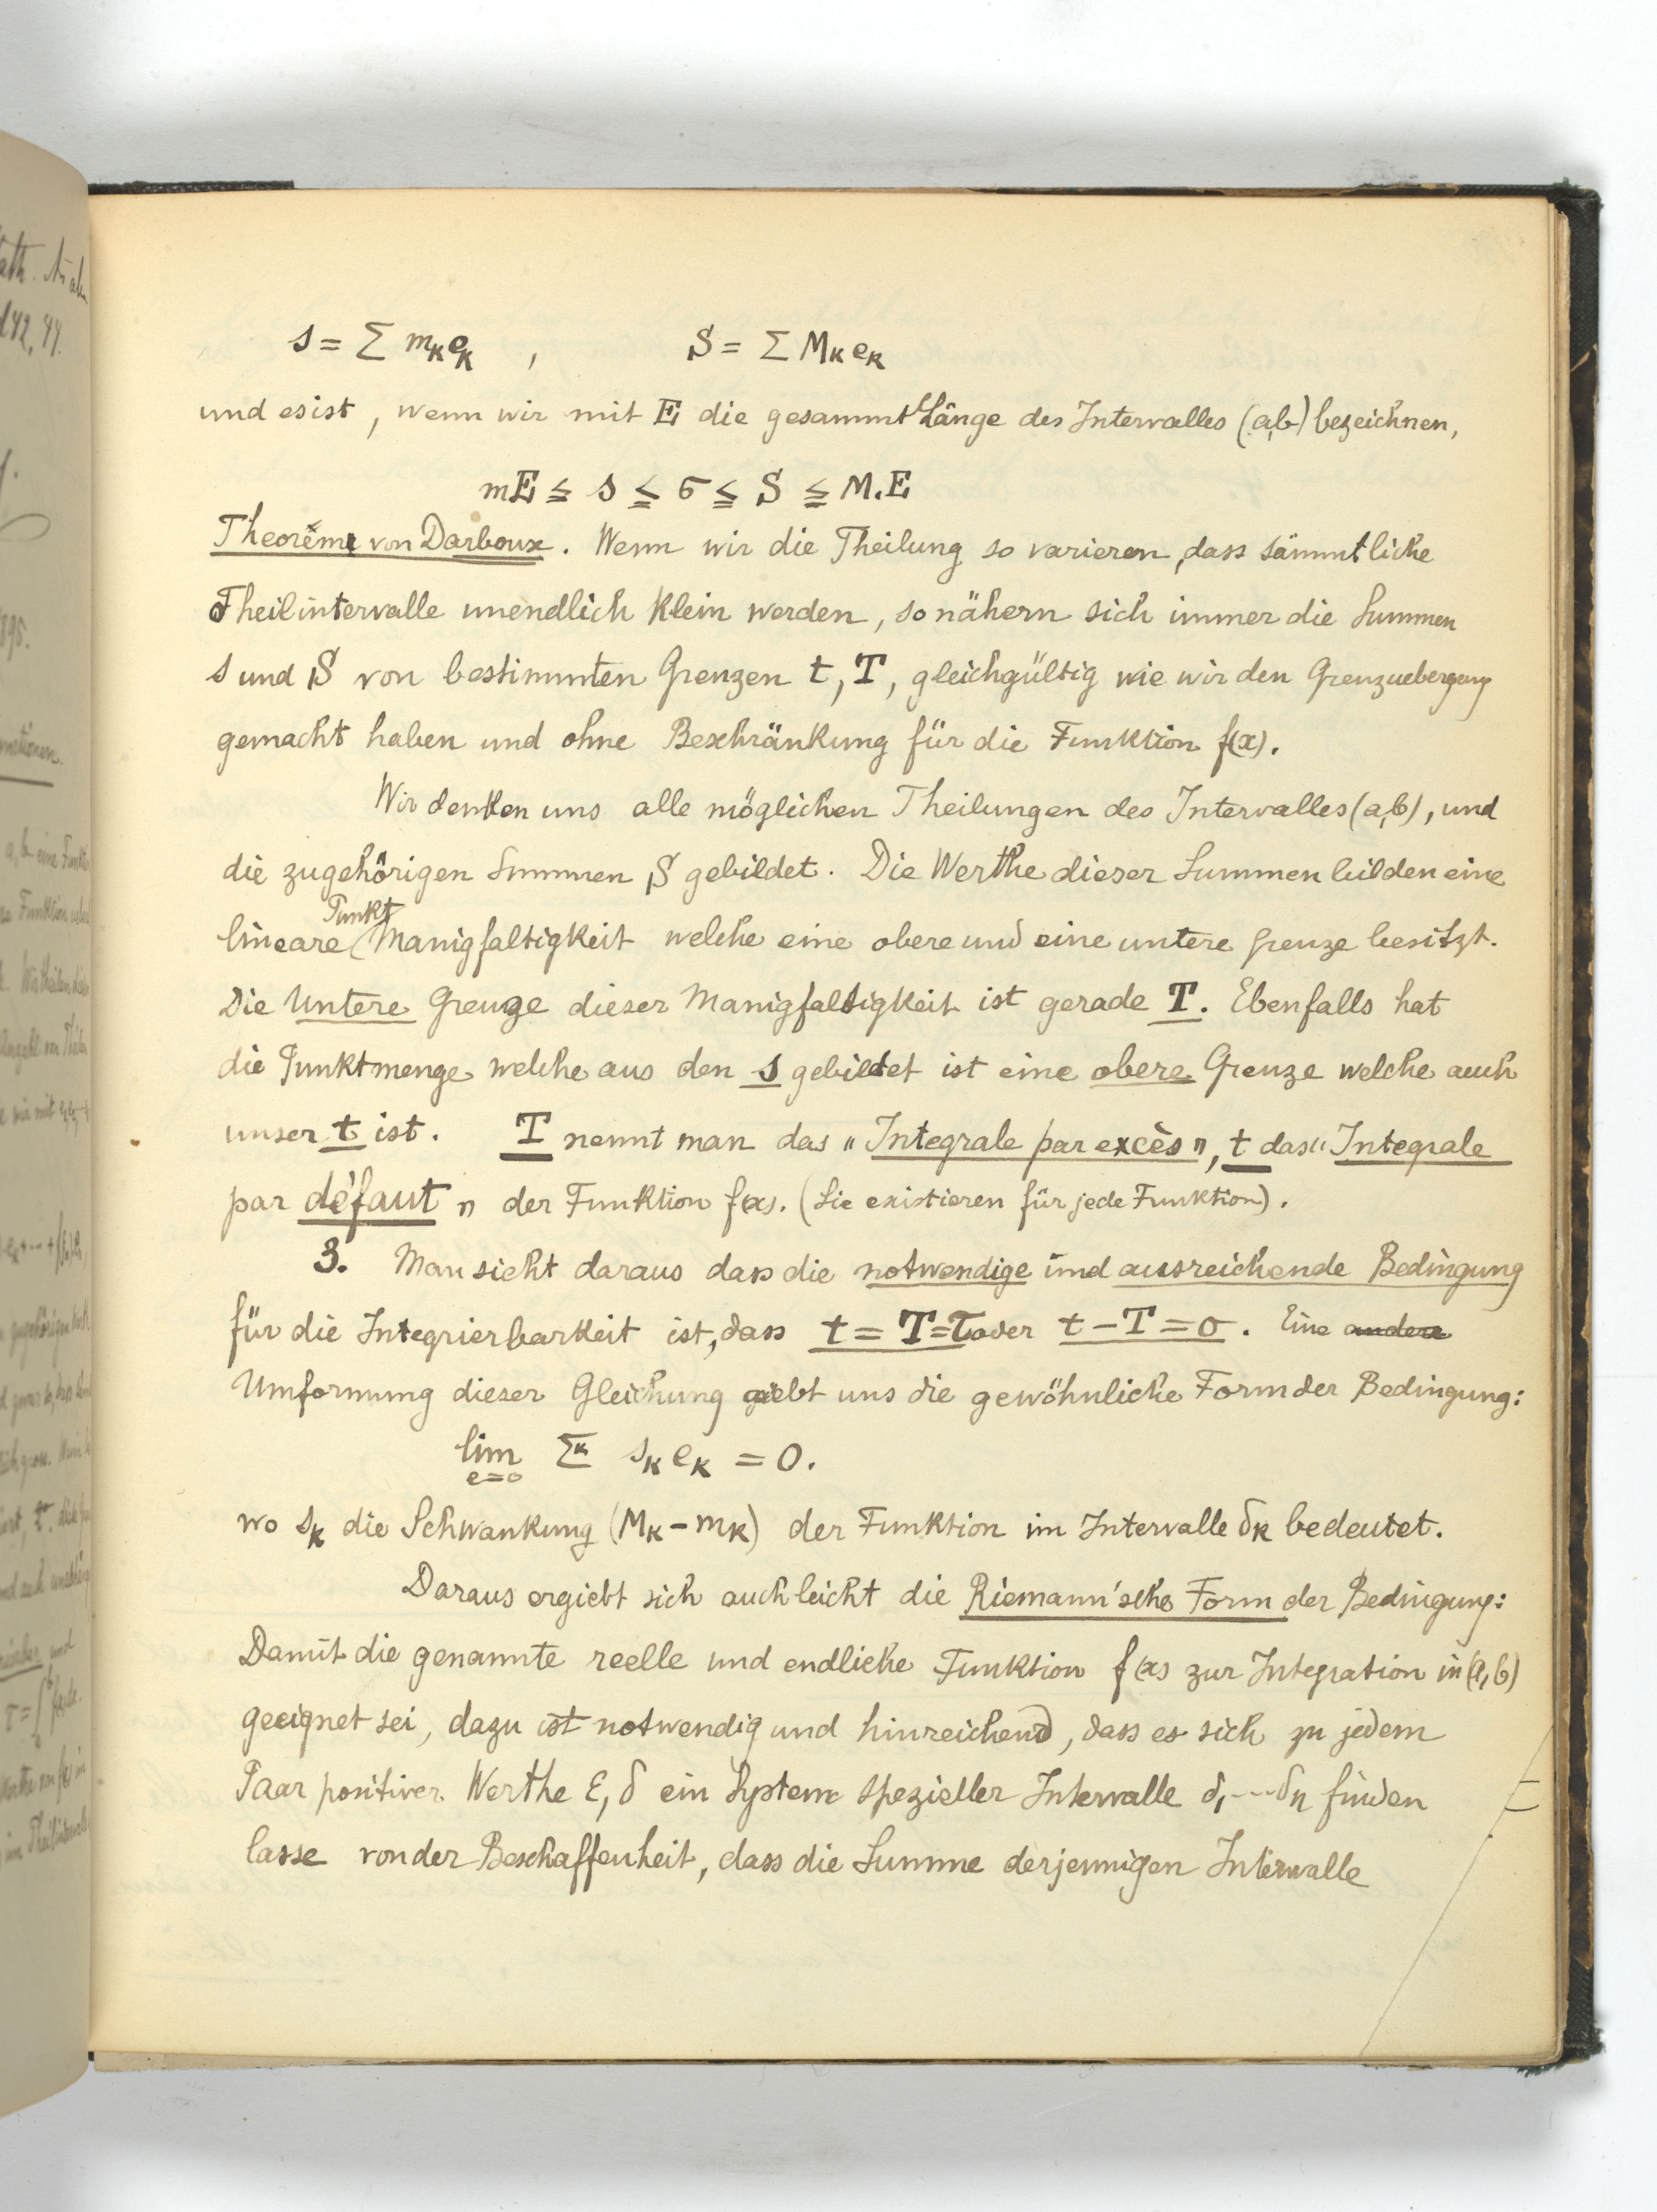 s = Σ mₖeₖ , S = Σ Mₖeₖ
und es ist, wenn wir mit E die gesammt Länge des Intervalles (a,b) bezeichnen,
mE ≦ s ≦ σ ≦ S ≦ M.E
Theorème von Darboux. Wenn wir die Theilung so varieren, dass sämmtliche
Theilintervalle unendlich klein werden, so nähern sich immer die Summen
s und S von bestimmten Grenzen t, T, gleichgültig wie wir den Grenzuebergang
gemacht haben und ohne Beschränkung für die Funktion f(x).
Wir denken uns alle möglichen Theilungen des Intervalles (a,b), und
die zugehörigen Summen S gebildet. Die Werthe dieser Summen bilden eine
Punkt
lineare Manigfaltigkeit welche eine obere und eine untere Grenze besitzt.
Die Untere Grenze dieser Manigfaltigkeit ist gerade T. Ebenfalls hat
die Punktmenge welche aus den s gebildet ist eine obere Grenze welche auch
unser t ist. T nennt man das „Integrale par excès", t das „Integrale
par défaut" der Funktion f(x). (Sie existieren für jede Funktion).
3. Man sieht daraus dass die notwendige und ausreichende Bedingung
für die Integrierbarkeit ist, dass t = T = τ oder t - T = 0. Eine andere
Umformung dieser Gleichung giebt uns die gewöhnliche Form der Bedingung:
lim Σᵏ sₖ eₖ = 0.
e=0
wo sₖ die Schwankung (Mₖ - mₖ) der Funktion im Intervalle δₖ bedeutet.
Daraus ergiebt sich auch leicht die Riemann'sche Form der Bedingung:
Damit die genannte reelle und endliche Funktion f(x) zur Integration in (a,b)
geeignet sei, dazu ist notwendig und hinreichend, dass es sich zu jedem
Paar positiver Werthe ε, δ ein System spezieller Intervalle δ₁ ... δn finden
lasse von der Beschaffenheit, dass die Summe derjennigen Intervalle